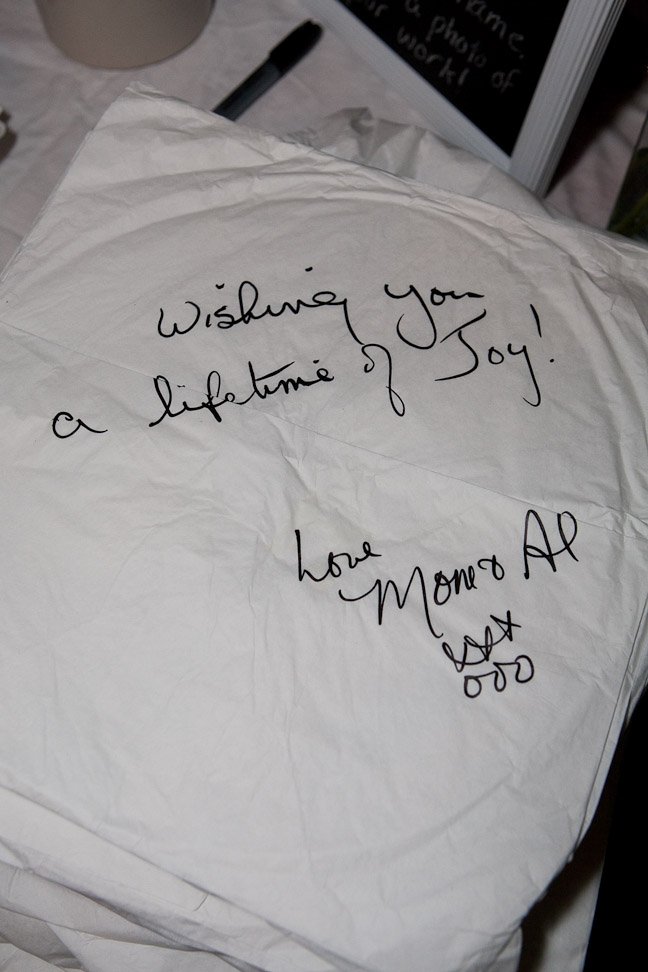 name.
a photo of
your work!
Wishing you
a lifetime of Joy!
Love
Mom & Al
xxx
ooo